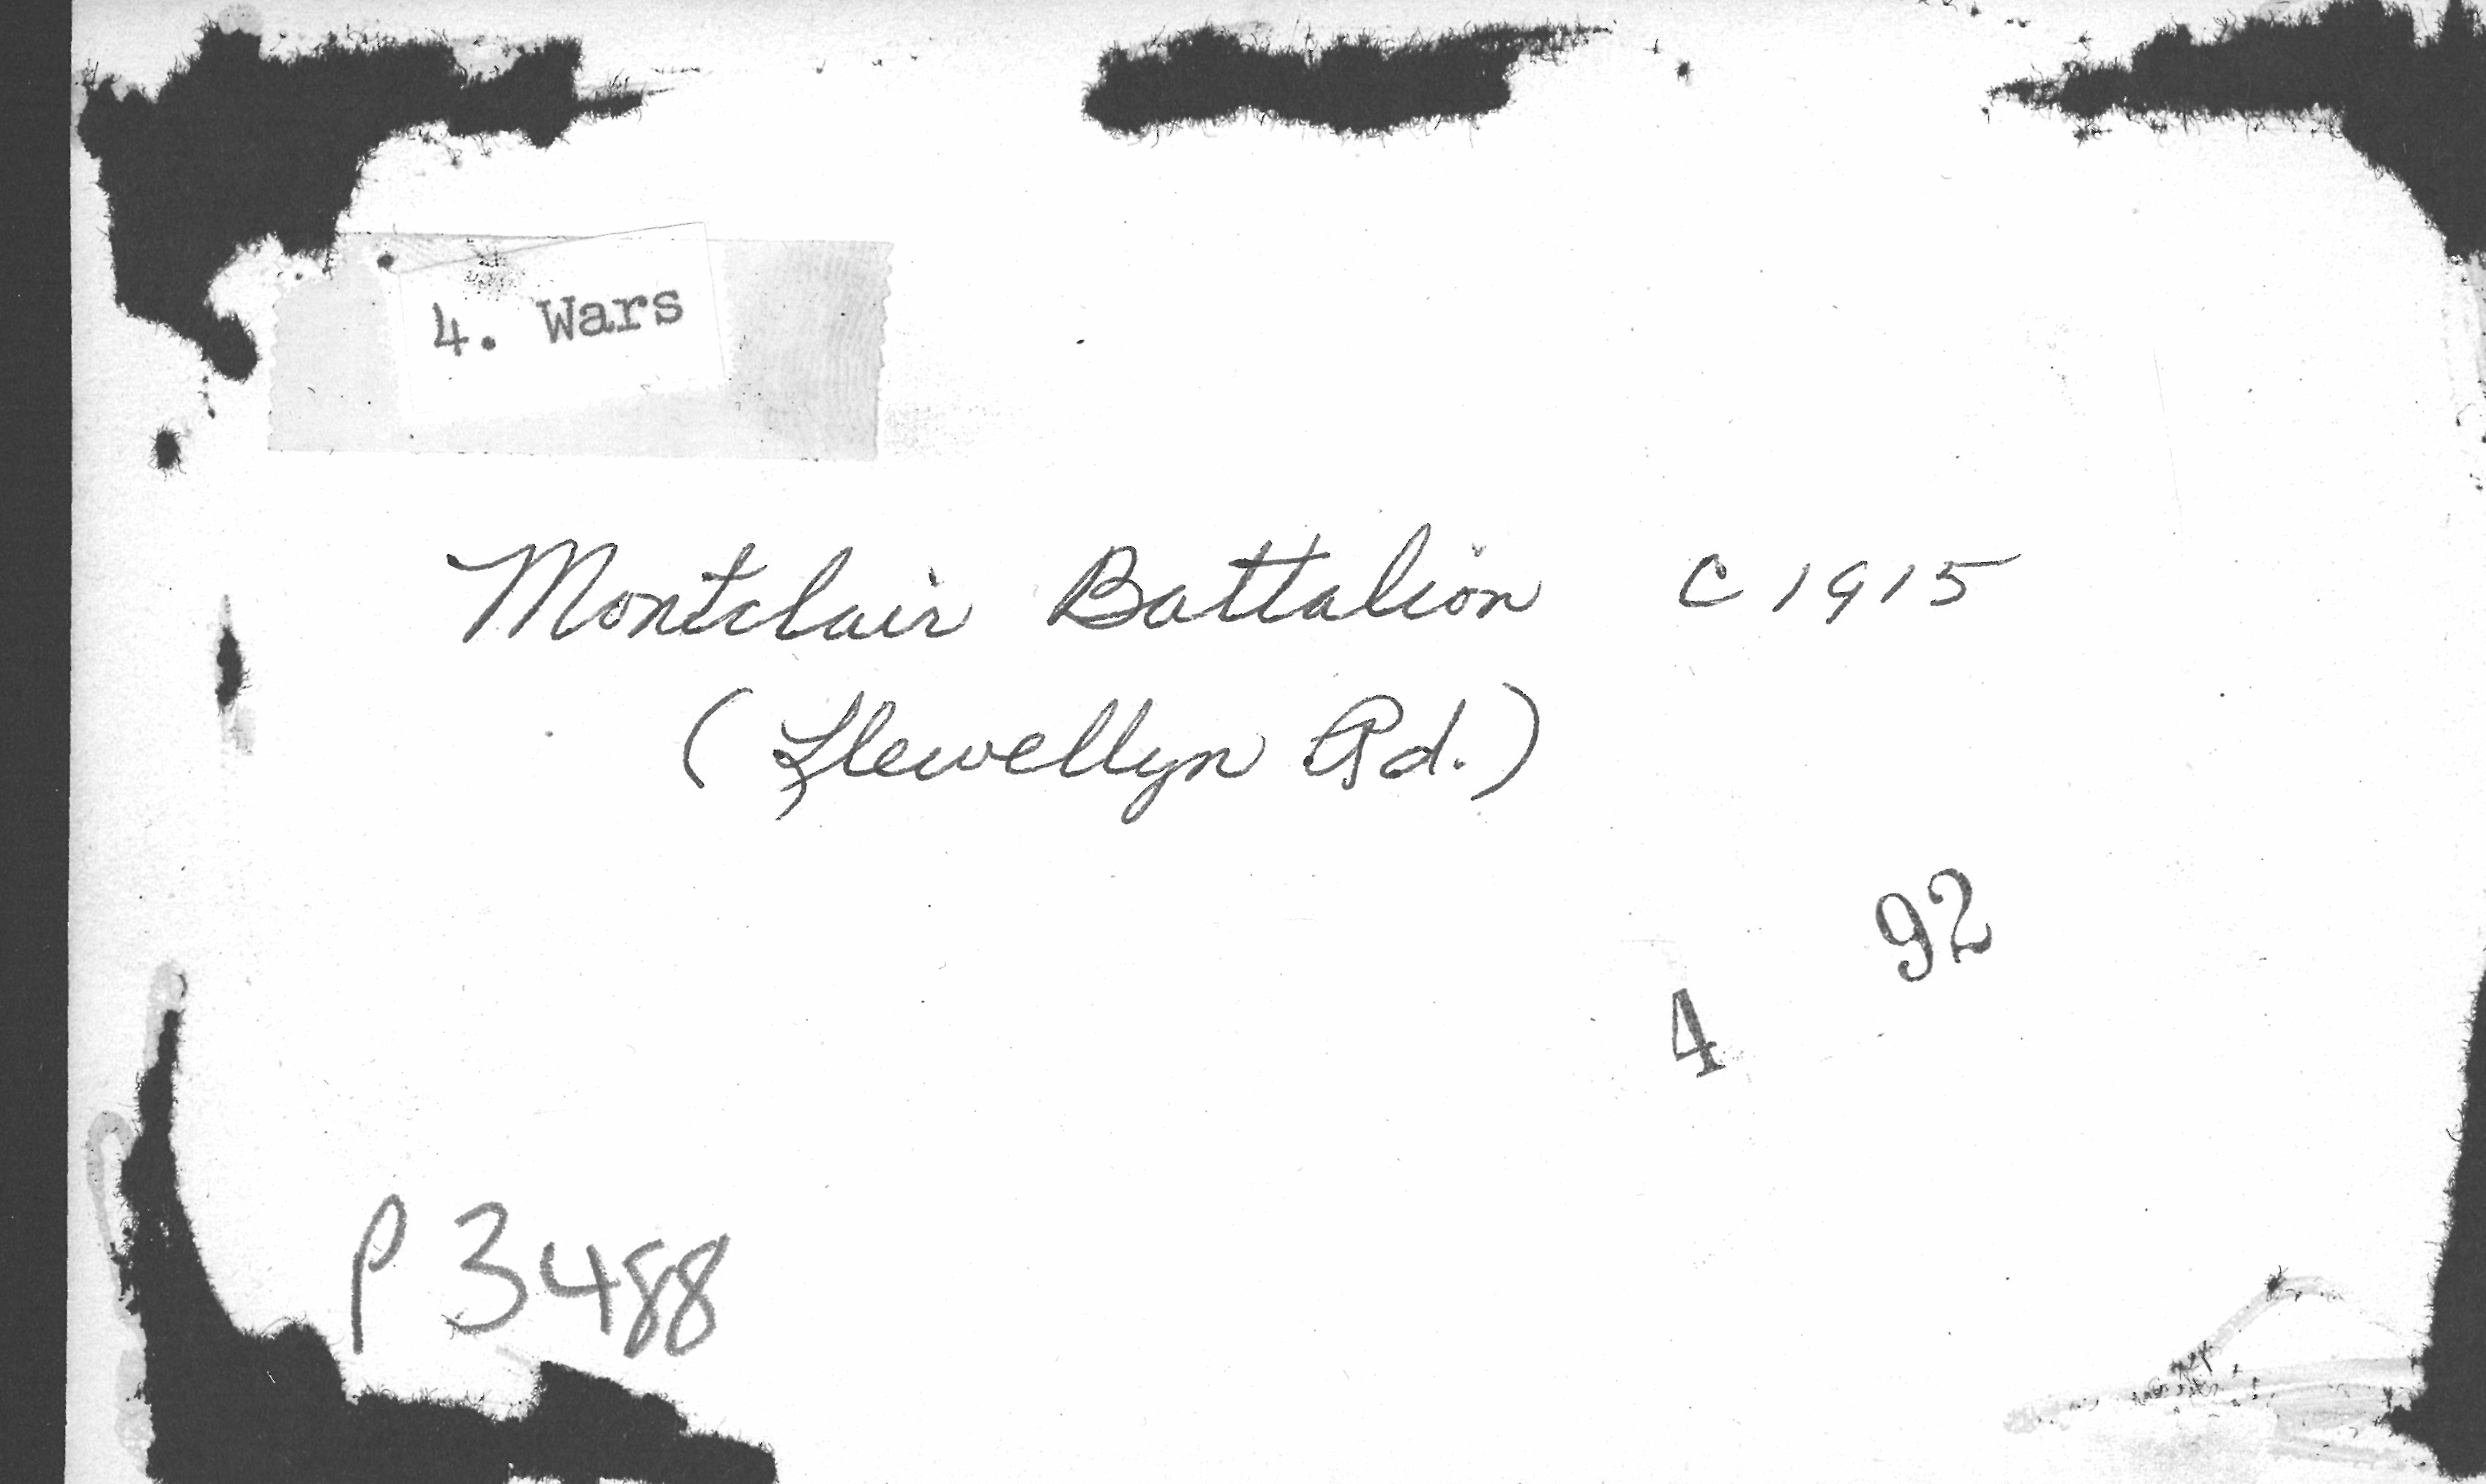 4. Wars
Montclair Battalion C 1915
(Llewellyn Rd.)
92
4
P 3488